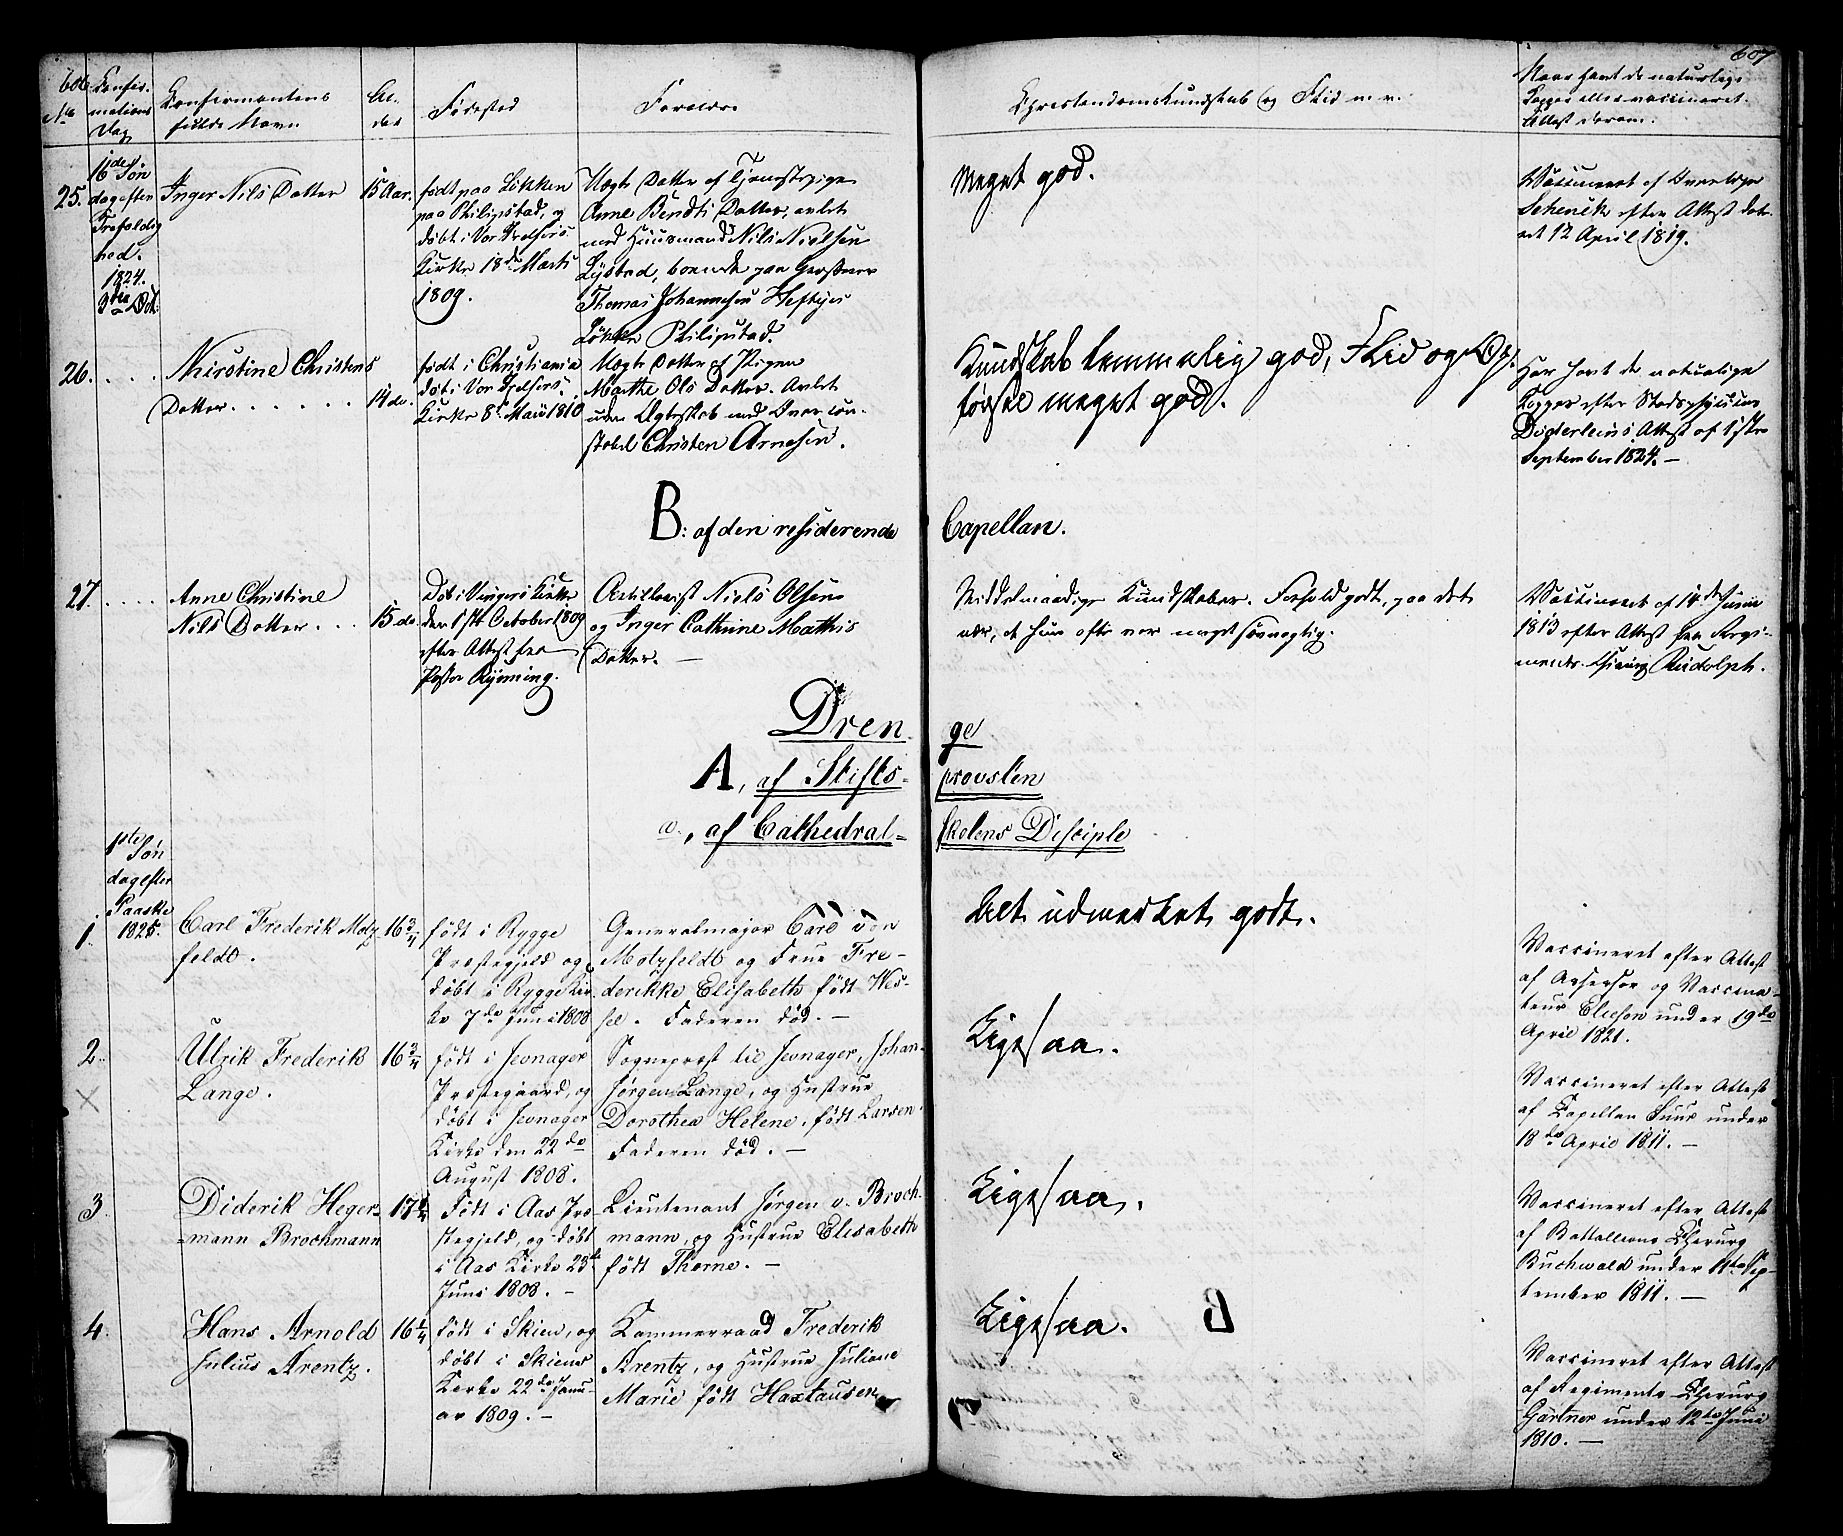 606
No
Confir-
mations
Dag
Confirmantens
fulde Navn
Al-
der
Fødested
Forældre
Christendomskundskab og Flid m. v.
607
Naar havt de naturlige
Kopper eller vaccineret.
Attest derom.
25.
16de Søn
dag efter
Trefoldig
hed.
1824.
3die Oct.
Inger Nils Datter
15 Aar.
født paa Løkken
paa Philipstad, og
døbt i Vor Frelsers
Kirke 18de Marts
1809.
Uægte Datter af Tjenestepige
Anne Bendts Datter, avlet
med Huusmand Nils Nielsen
Lystad, boende paa
Thomas Johannesen Heftyes
Løkke Philipstad.
Meget god.
Vaccineret af Overlæge
Schenck efter Attest date-
ret 12 April 1819.
26. . . . .
Kirstine Christens
Datter . . . . . .
14 do.
født i Christiania
døbt i Vor Frelsers
Kirke 8de Marts 1810
Uægte Datter af Pigen
Marthe Ols Datter. Avlet
uden Ægteskab med Overcon-
stabel Christen Arnesen.
Kundskab temmelig god, Flid og Op-
førsel meget god.
Har havt de naturlige
Kopper efter Stadsphysicus
Døderleins Attest af 17de
September 1824. —
B: af den residerende Capellan.
27. . . . .
Anne Christine
Nils Datter . . .
15 do.
Døbt i Vingers Kirke
den 1ste October 1809
efter Attest fra
Pastor Rynning.
Artillerist Niels Olsen
og Inger Cathrine Mathis
Datter. —
Middelmaadige Kundskaber. Forhold godt, paa det
nær, at hun ofte var meget søvnagtig.
Vaccineret af 14de Junii
1813 efter Attest fra Regi-
ments Chirurg Rudolph.
Dren- ge
A, af Stifts- provsten
a., af Cathedral- skolens Disciple
1.
1ste Søn
dag efter
Paaske
1825.
Carl Frederik Motz-
feldt.
16 3/4
født i Rygge
Præstegjeld og
døbt i Rygge Kir-
ke 7de Juni 1808
Generalmajor Carl von
Motzfeldt og Frue Fre-
derikke Elisabeth født Wes-
sel. Faderen død. —
Alt udmærket godt.
Vaccineret efter Attest
af Assessor og Vaccina-
teur Elieson under 19de
April 1821.
2.
X
Ulrik Frederik
Lange.
16 3/4
født i Jevnager
Præstegaard, og
døbt i Jevnager
Kirke den 22de
August 1808.
Sognepræst til Jevnager, Johan
Jørgen Lange, og Hustrue
Dorothea Helene, født Larsen.
Faderen død. —
Ligesaa.
Vaccineret efter Attest
af Capellan Tuur under
18de April 1811. —
3.
Diderik Heger-
mann Brochmann
17
Født i Aas Præ-
stegjeld, og døbt
i Aas Kirke 23de
Juni 1808. —
Lieutenant Jørgen v. Broch-
mann, og Hustrue Elisabeth
født Thorne. —
Ligesaa.
Vaccineret efter Attest
af Battallions Chirurg
Buchwald under 11te Sep-
tember 1811. —
4.
Hans Arnold
Julius Arentz.
16 1/4
født i Skien, og
døbt i Skiens
Kirke 22de Janu-
ar 1809. —
Kammerraad Frederik
Arentz, og Hustrue Juliane
Marie født Haxtausen
Ligesaa.
B
Vaccineret efter Attest
af Regiments-Chirurg
Gartner under 12te Juni
1810. —